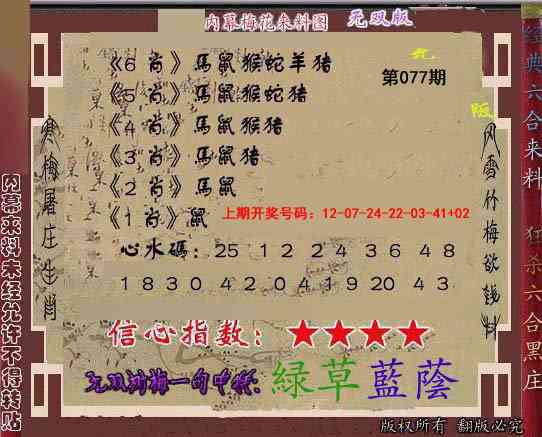 内幕梅花来料图 无双版
《6 肖》馬鼠猴蛇羊猪
《5 肖》馬鼠猴蛇猪
《4 肖》馬鼠猴猪
《3 肖》馬鼠猪
《2 肖》馬鼠
《1 肖》鼠
第077期
上期开奖号码：12-07-24-22-03-41+02
心水碼：25 12 24 36 48
18 30 42 04 19 20 43
信心指数：★★★★
无双剑梅一句中特：綠草藍蔭
版权所有 翻版必究
寒梅屠庄生肖
风雪竹梅欲钱料
内幕来料未经允许不得转贴
经典六合来料 狂杀六合黑庄